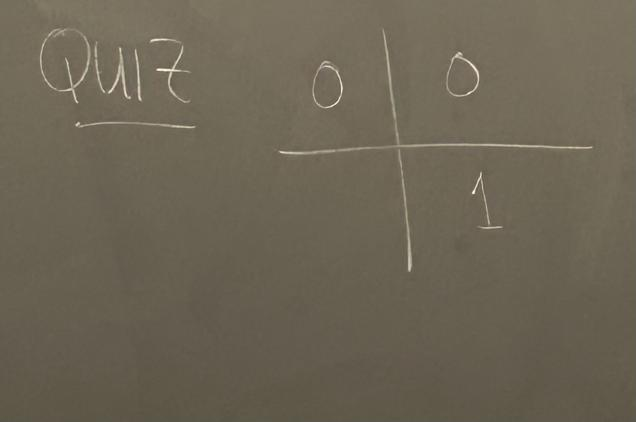 QUIZ
0 0
1